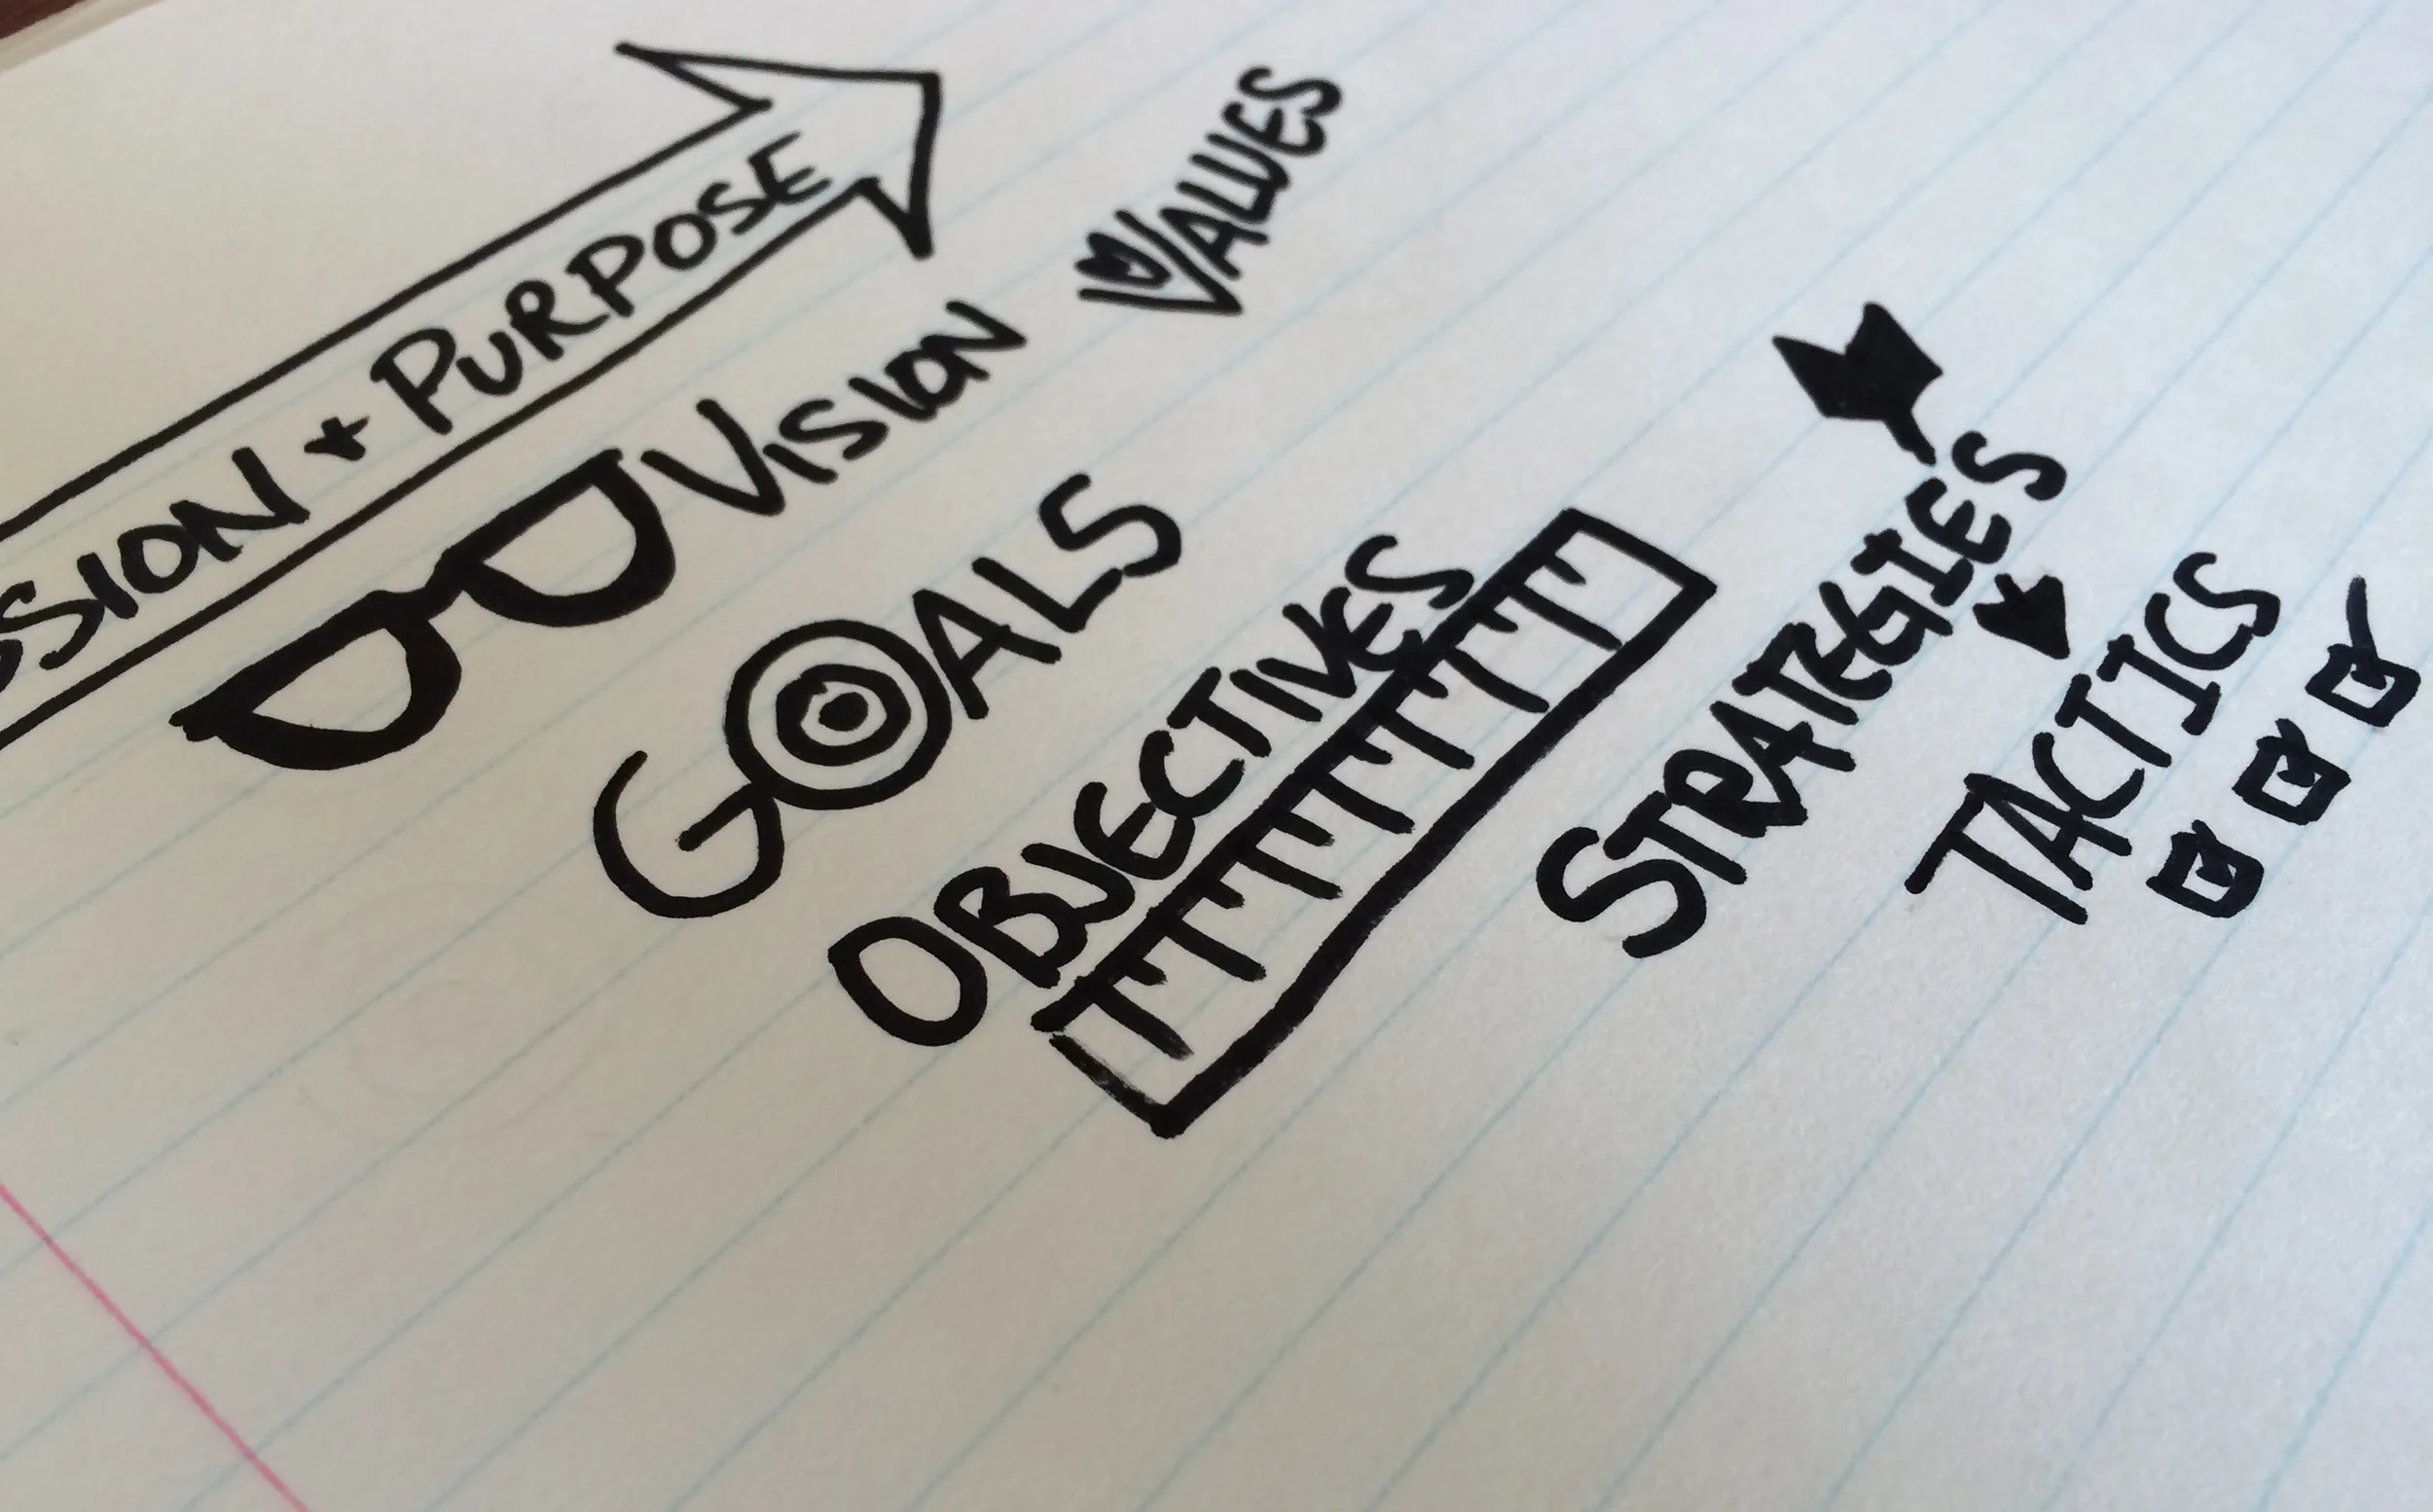 SSION + PURPOSE
VISION VALUES
GOALS
OBJECTIVES
STRATEGIES
TACTICS